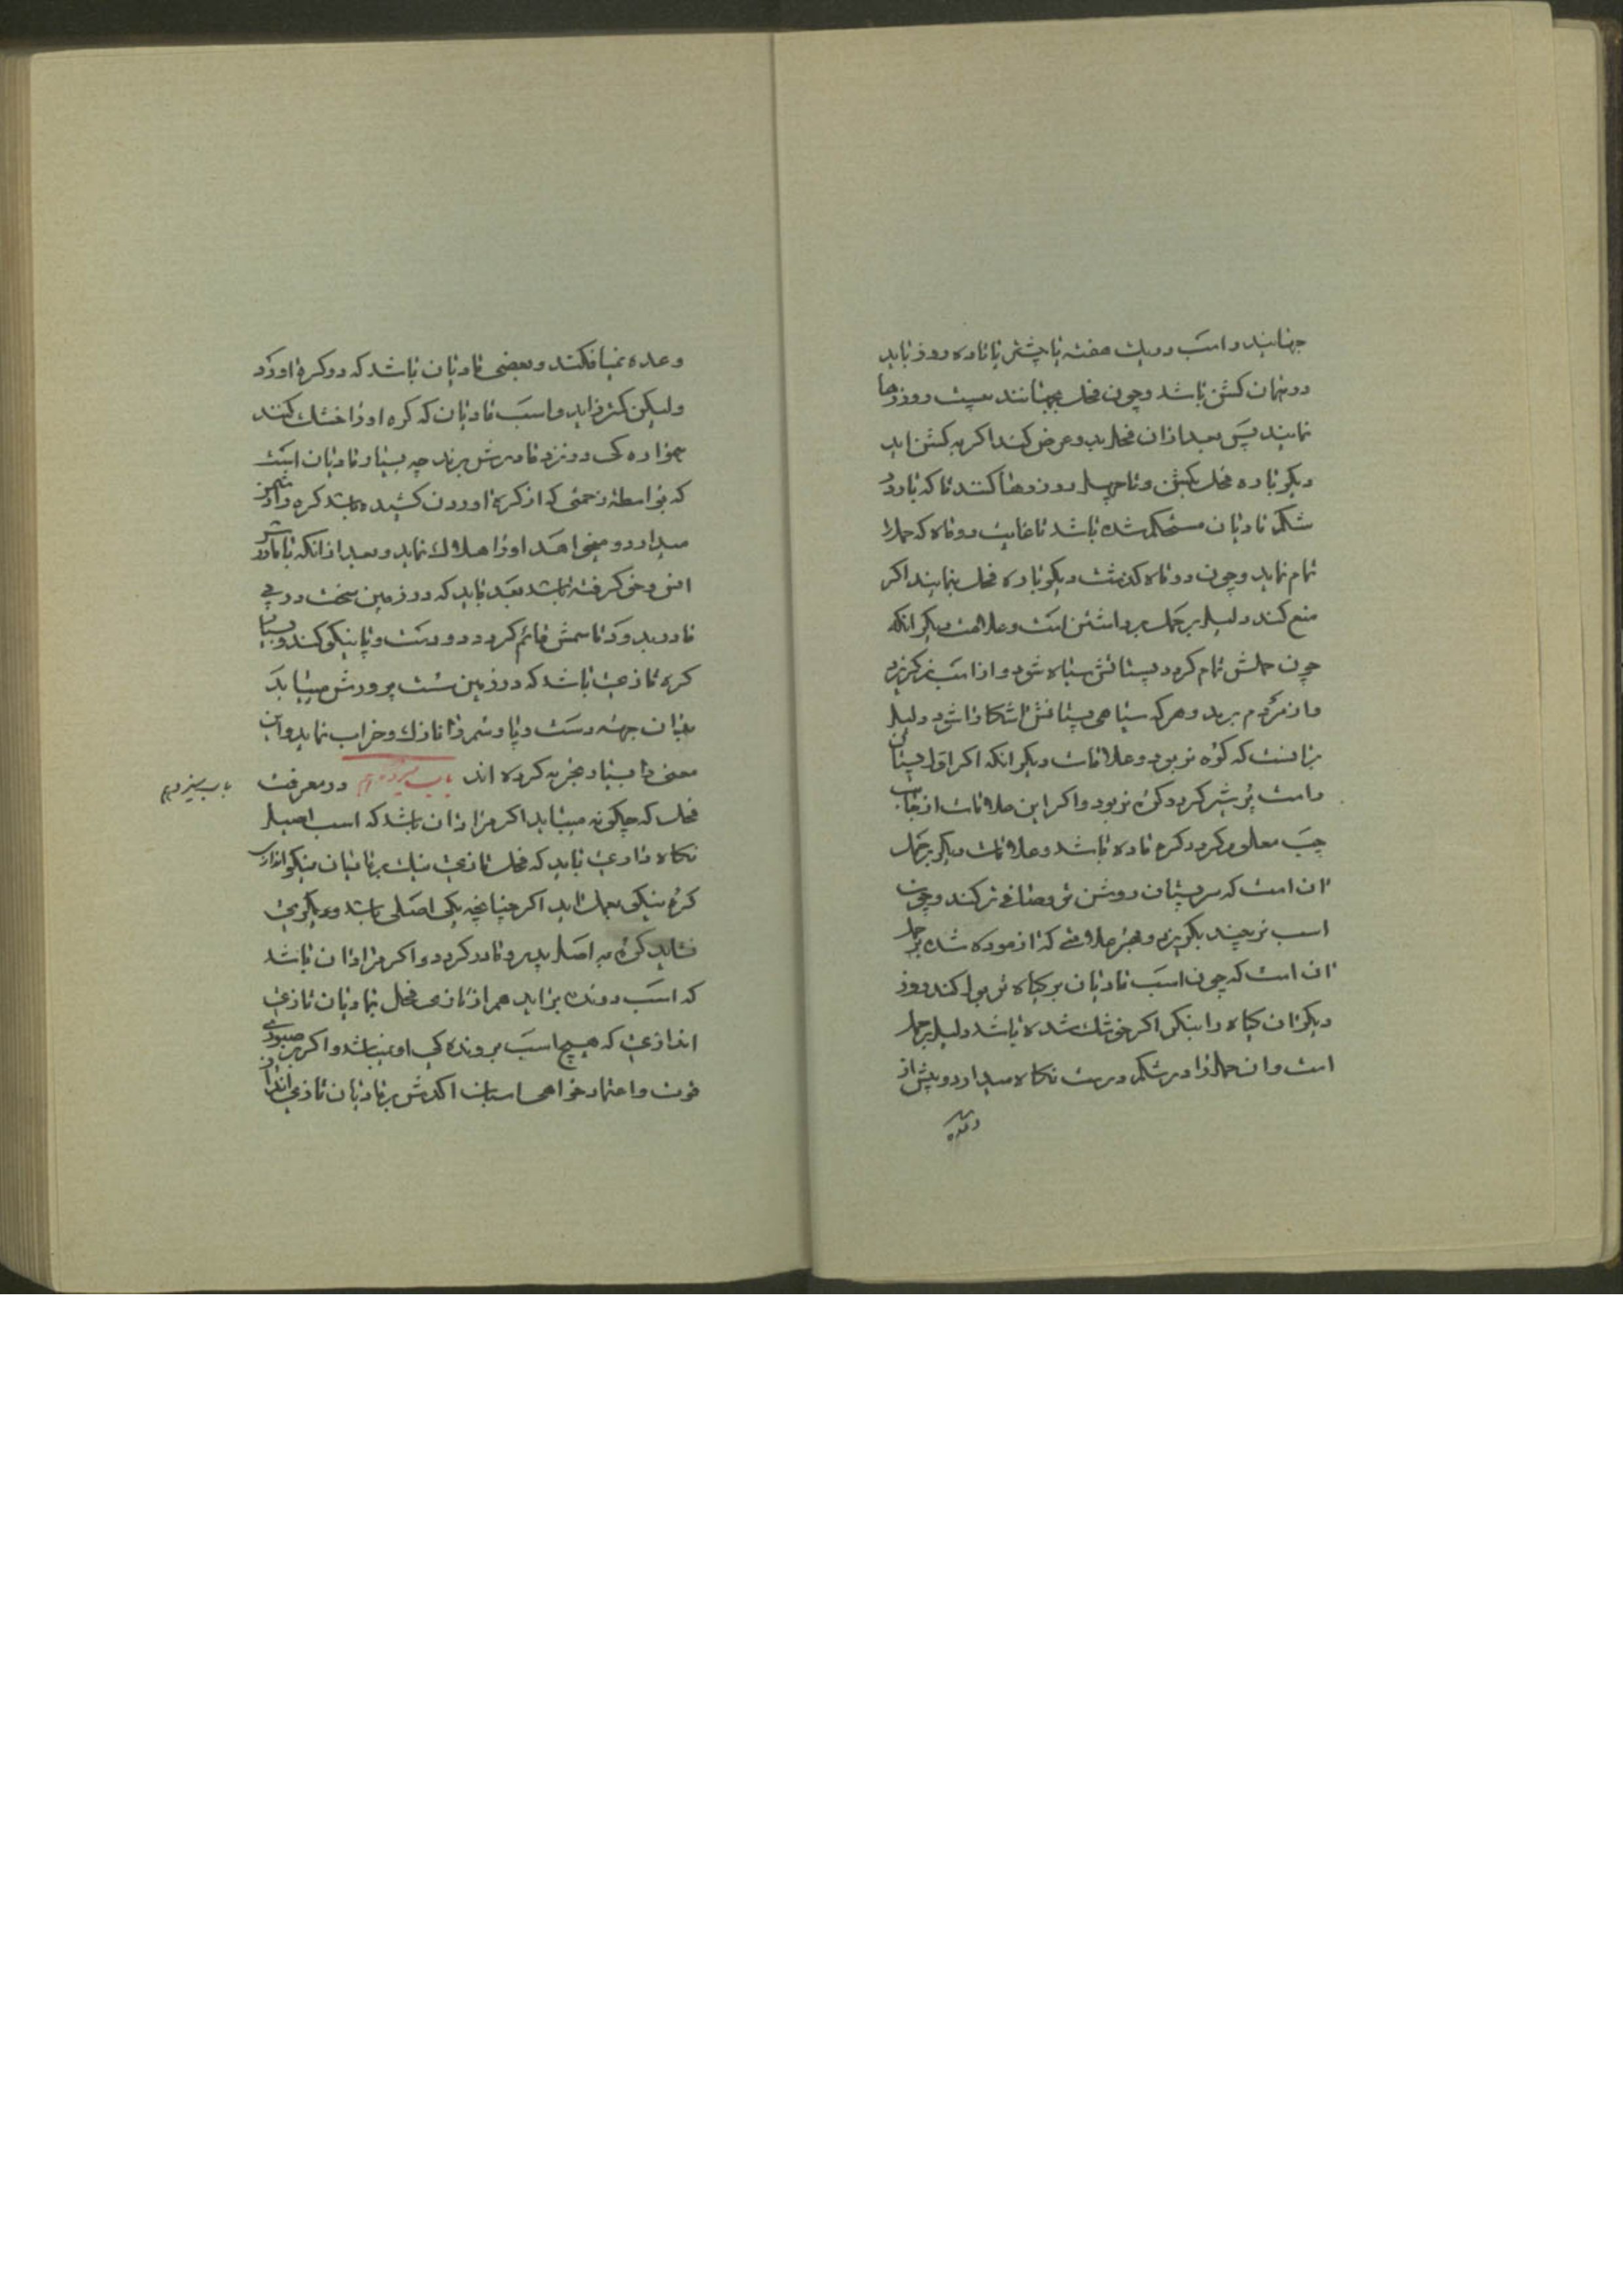 جهانیدند و اسب در یک هفته یا هشت یا تا ده روز باید
در بهان کشن باشد و چون فحل بجهانند بیست روز رها
نمایند پس بعد ازان فحل بد و عرض کنند اکر به کشن اید
دیکر باره فحل بکشن و تا چهل روز رها کنند تا که بار در
شکم مادیان مستحکم شده باشد تا غایت دو ماه که حمل را
تمام نماید و چون دو ماه کذشت دیکر باره فحل بنمایند اکر
منع کند دلیل بر حمل برداشتن است و علامت دیکر انکه
چون حملش تمام کردد پستانش سیاه شود و از اسب نر کریزد
و از مردم برمد و هرکه سیاهی پستانش اشکارا شود دلیل
بر انست که کره نر بود و علامات دیکر انکه اکر اول پستان
راست پر شیر کردد کره نر بود و اکر این علامات از جانب
چپ معلوم کردد کره ماده باشد و علامت دیکر بر حمل
ان است که سر پستان روشن و چون
اسب نر بیند بکریزد و علامتی که ازموده شده بر حمل
ان است که چون اسب مادیان بر کیاه تر بول کند روز
دیکر ان کیاه را بنکر اکر خوشک شده باشد دلیل بر حمل
است و ان حمل را در شکم درست نکاه میدارد و پیش از
وعده
وعده نمیافکند و بعضی مادیان باشد که دو کره اورد
ولیکن کمتر زاید و اسب مادیان که کره او را خشک کنند
همواره کی در نزد مادرش برند چه بسیار مادیان است
که بواسطه زحمتی که از کره اوردن کشیده باشد کره را دشمن
میدارد و میخواهد او را هلاک نماید و بعد از انکه با مادرش
انس و خو کرفته باشد بعد باید که در زمین سخت در پی
مادر بدود تا سمش قائم کردد و دست و پا نیکو کند و بسیار
کره تازی باشد که در زمین سست پرورش مییابد
بدان جهته دست و پا و سم را نازک و خراب نماید و این
معنی را بسیار تجربه کرده اند باب سیزدهم در معرفت
باب سیزدهم
فحل که چکونه میباید اکر مراد ان باشد که اسب اصیل
نکاه داری باید که فحل تازی نیک بر مادیان نیکو اندازی
کره نیکو بعمل اید اکر چنانچه یکی اصلی باشد و دیکری
نشاید کره به اصل پدر و مادر کردد و اکر مراد ان باشد
که اسب دونده بزاید هم از تازی فحل بمادیان تازی
اندازی که هیچ اسب بدوندکی او نباشد و اکر صبوری
قوت و اعتماد خواهی اسبان اکدش بر مادیان تازی انداز